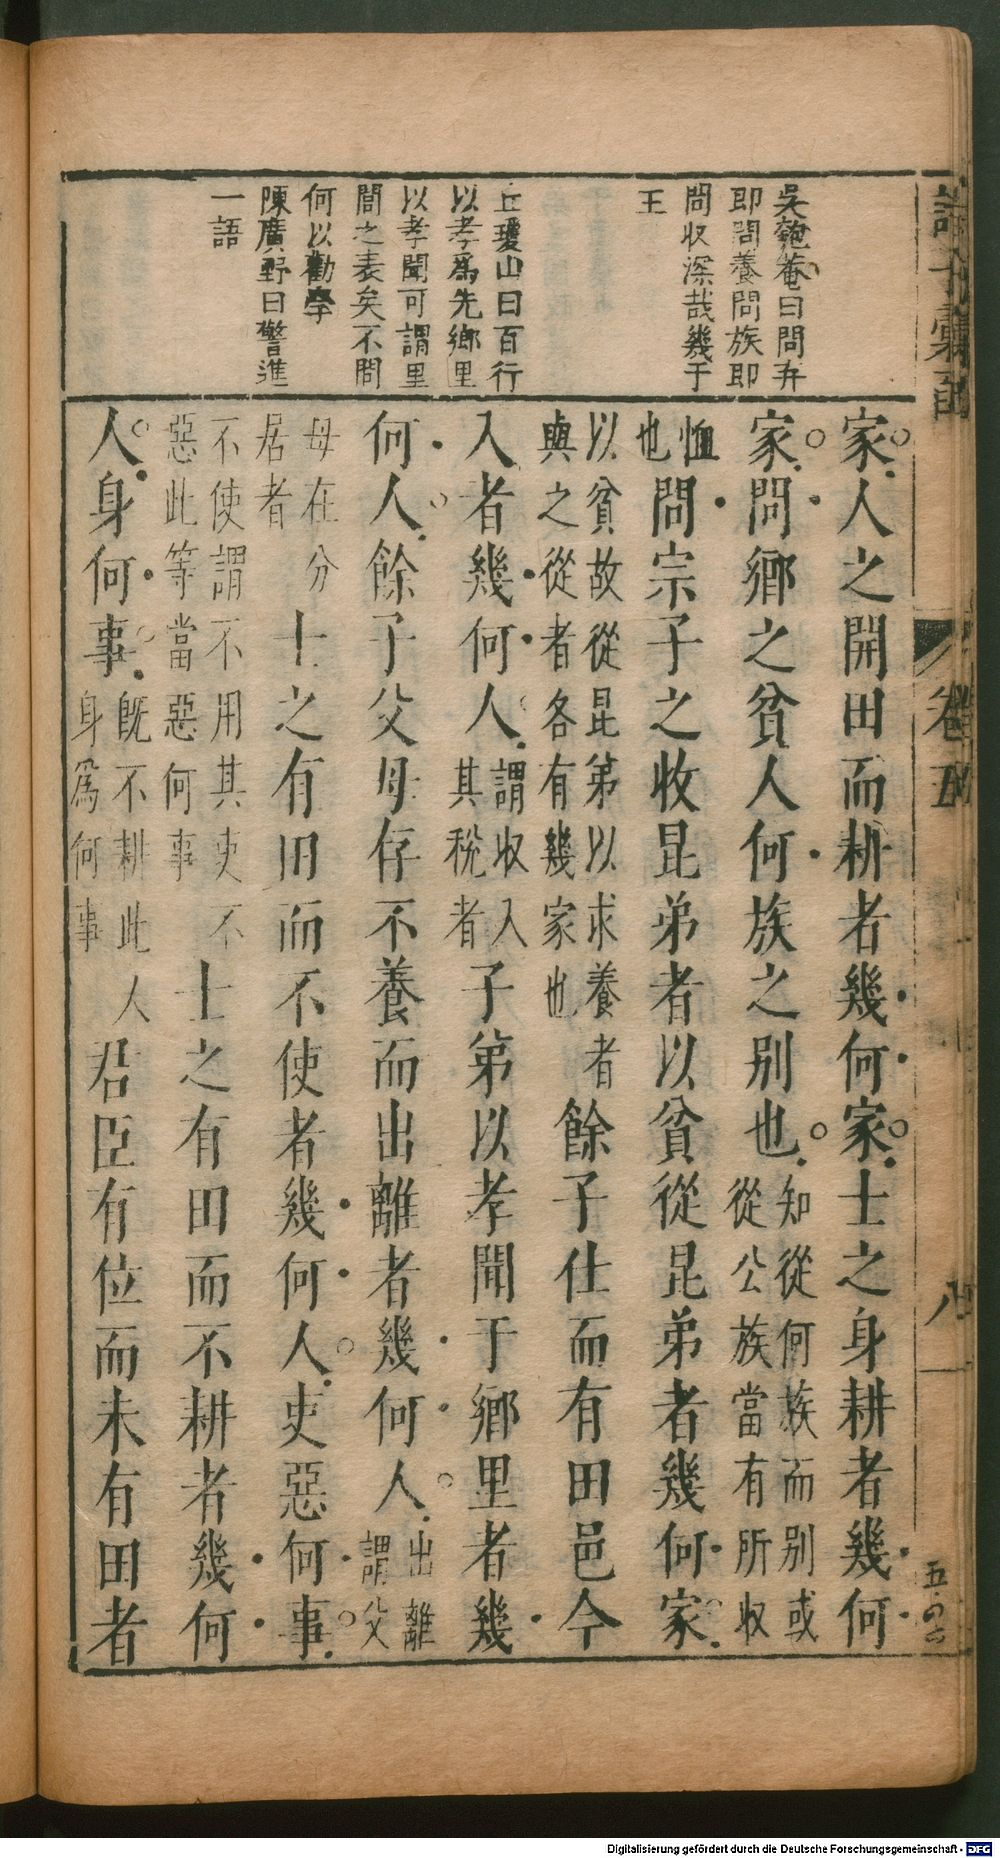 吳匏菴曰問弃
即問養問族即
問收深哉幾于
王
丘瓊山曰百行
以孝爲先鄉里
以孝聞可謂里
閭之表矣不問
何以勸學
陳廣野曰警進
一語
家人之開田而耕者幾何家士之身耕者幾何
家問鄉之貧人何族之別也知從何族而別或從公族當有所收
恤也問宗子之收昆弟者以貧從昆弟者幾何家
以貧故從昆弟以求養者與之從者各有幾家也餘子仕而有田邑今
入者幾何人謂收入其稅者子弟以孝聞于鄉里者幾
何人餘子父母存不養而出離者幾何人出離謂父
母在分居者士之有田而不使者幾何人吏惡何事
不使謂不用其吏不惡此等當惡何事士之有田而不耕者幾何
人身何事既不耕此身爲何事人君臣有位而未有田者
卷五
八
Digitalisierung gefördert durch die Deutsche Forschungsgemeinschaft - DFG